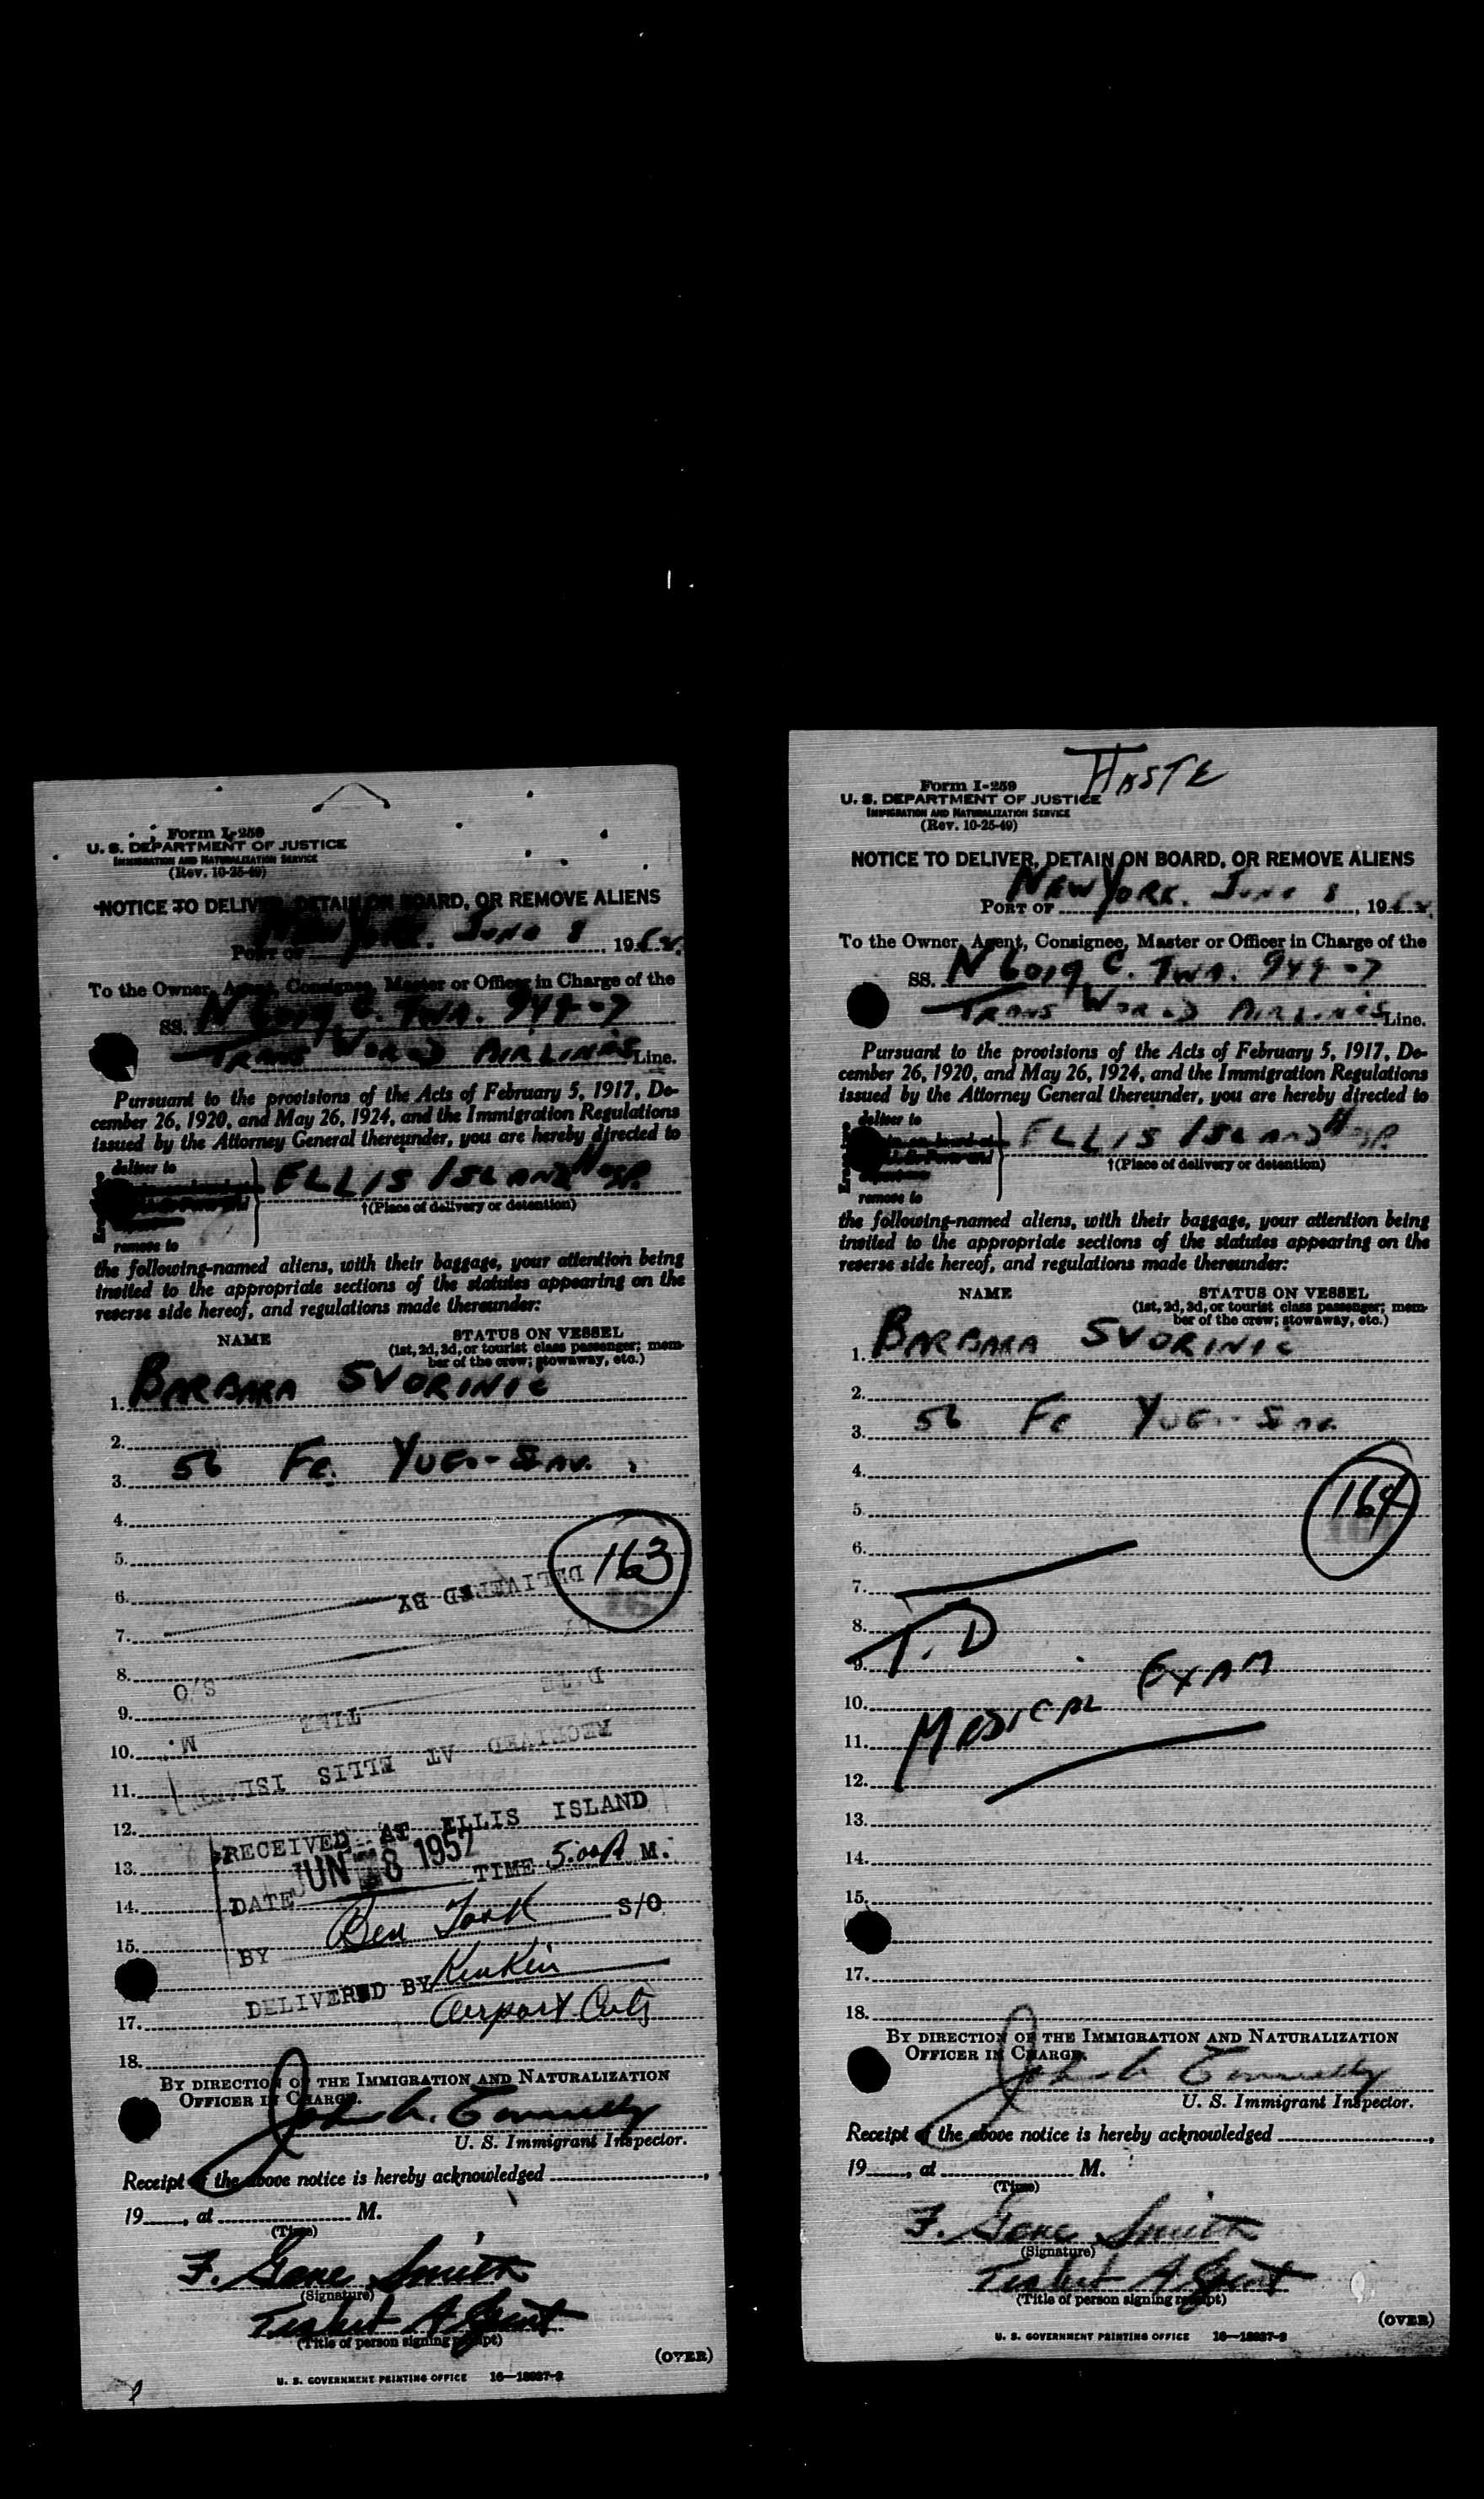 Form I-259
U. S. DEPARTMENT OF JUSTICE
IMMIGRATION AND NATURALIZATION SERVICE
(Rev. 10-25-49)
NOTICE TO DELIVER, DETAIN ON BOARD, OR REMOVE ALIENS
PORT OF NEW YORK. JUNE 8, 195
To the Owner, Agent, Consignee, Master or Officer in Charge of the
SS. N 6019 C. TWA. 944-7
TRANS WORLD AIRLINES Line.
Pursuant to the provisions of the Acts of February 5, 1917, De-
cember 26, 1920, and May 26, 1924, and the Immigration Regulations
issued by the Attorney General thereunder, you are hereby directed to
deliver to
ELLIS ISLAND HOSP.
†(Place of delivery or detention)
remove to
the following-named aliens, with their baggage, your attention being
invited to the appropriate sections of the statutes appearing on the
reverse side hereof, and regulations made thereunder:
NAME STATUS ON VESSEL
(1st, 2d, 3d, or tourist class passenger; mem-
ber of the crew; stowaway, etc.)
1. BARBARA SVORINIC
2.
3. 56 Fe. YUGO-SLAV.
4.
5. 163
6. DELIVERED BY
7.
8. S/O
9. DATE
10. M. TIME
11. RECEIVED AT ELLIS ISLAND
12. RECEIVED AT ELLIS ISLAND
13. JUN 8 1952
14. DATE TIME 5:00 P M.
15. BY Ben S/O
DELIVERED BY
17. Airport
18.
BY DIRECTION OF THE IMMIGRATION AND NATURALIZATION
OFFICER IN CHARGE.
John A. Connelly
U. S. Immigrant Inspector.
Receipt of the above notice is hereby acknowledged
19, at M.
(Time)
F. Gene Smith
(Signature)
Ticket Agent
(Title of person signing receipt)
(OVER)
U. S. GOVERNMENT PRINTING OFFICE 16—18037-2
HASTE
Form I-259
U. S. DEPARTMENT OF JUSTICE
IMMIGRATION AND NATURALIZATION SERVICE
(Rev. 10-25-49)
NOTICE TO DELIVER, DETAIN ON BOARD, OR REMOVE ALIENS
PORT OF NEW YORK. JUNE 8, 195
To the Owner, Agent, Consignee, Master or Officer in Charge of the
SS. N 6019 C. TWA. 944-7
TRANS WORLD AIRLINES Line.
Pursuant to the provisions of the Acts of February 5, 1917, De-
cember 26, 1920, and May 26, 1924, and the Immigration Regulations
issued by the Attorney General thereunder, you are hereby directed to
deliver to
ELLIS ISLAND HOSP.
†(Place of delivery or detention)
remove to
the following-named aliens, with their baggage, your attention being
invited to the appropriate sections of the statutes appearing on the
reverse side hereof, and regulations made thereunder:
NAME STATUS ON VESSEL
(1st, 2d, 3d, or tourist class passenger; mem-
ber of the crew; stowaway, etc.)
1. BARBARA SVORINIC
2.
3. 56 Fe YUGO-SLAV.
4.
5. 164
6.
7.
8. T.D
9.
10. MEDICAL EXAM
11.
12.
13.
14.
15.
17.
18.
BY DIRECTION OF THE IMMIGRATION AND NATURALIZATION
OFFICER IN CHARGE.
John A. Connelly
U. S. Immigrant Inspector.
Receipt of the above notice is hereby acknowledged
19, at M.
(Time)
F. Gene Smith
(Signature)
Ticket Agent
(Title of person signing receipt)
(OVER)
U. S. GOVERNMENT PRINTING OFFICE 16—18037-2